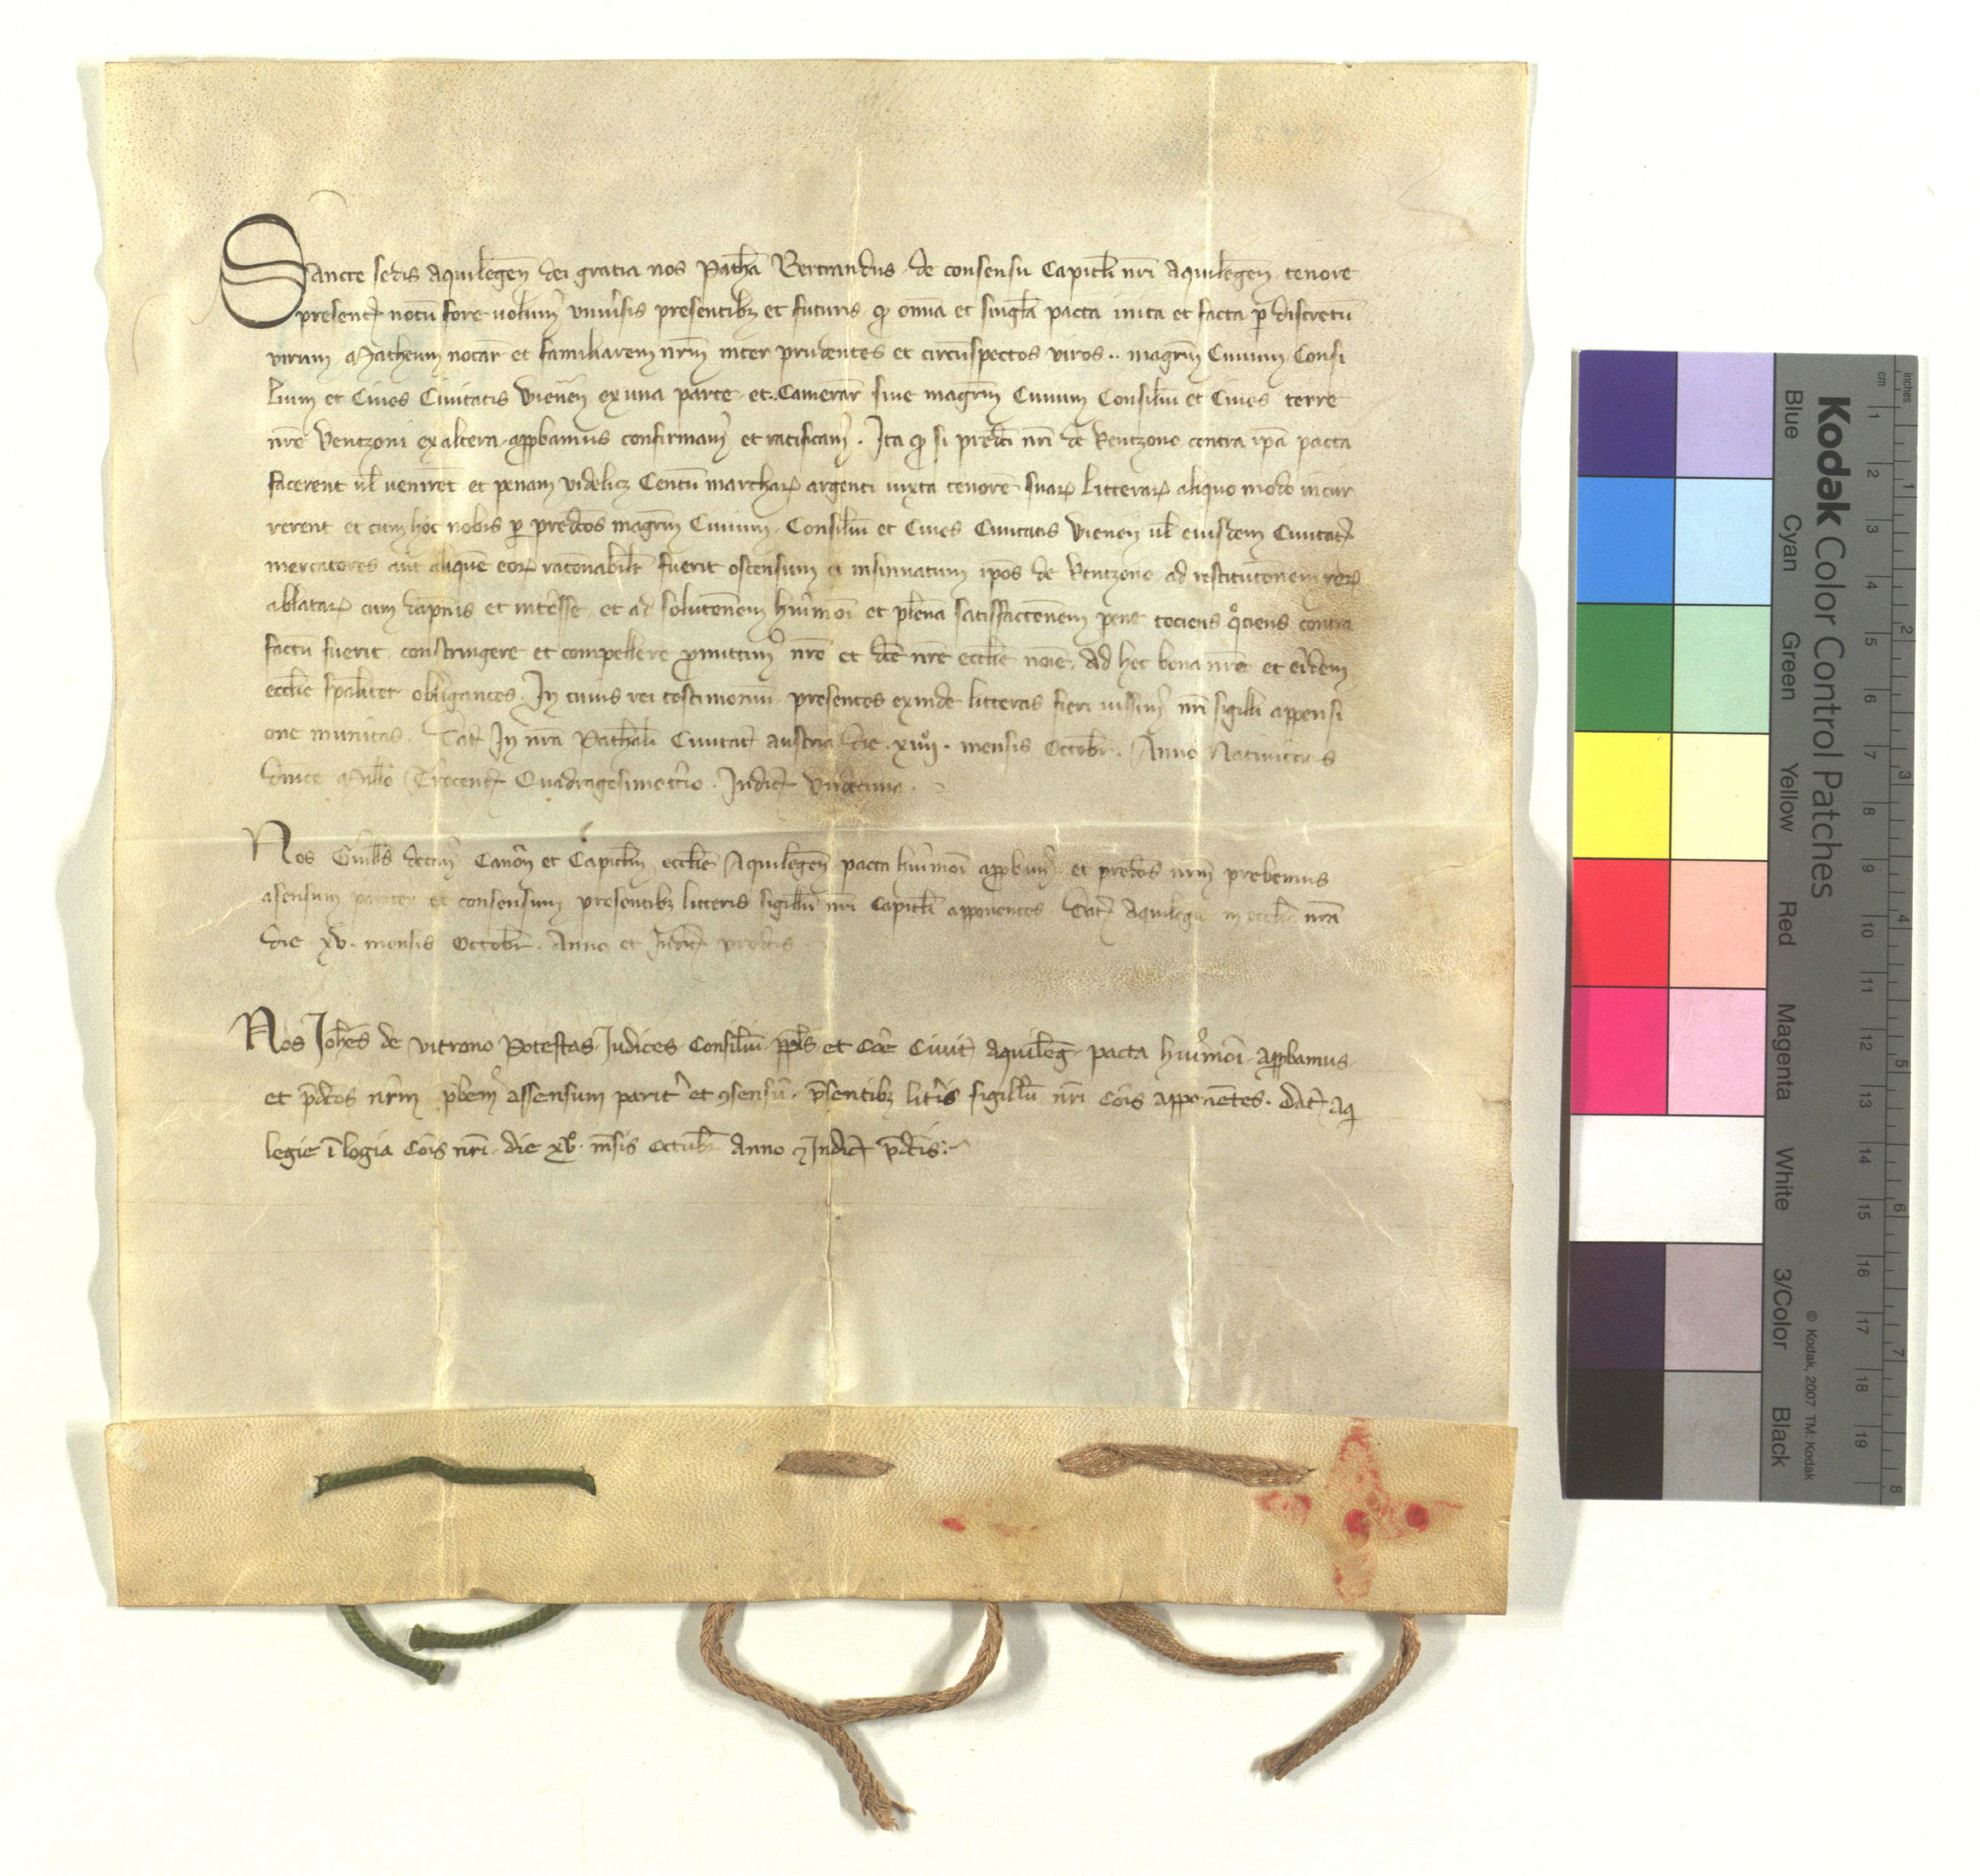 Sancte sedis Aquilegen̄ dei gratia nos Pat͛ha Bertrandus de consensu Capitl̄i nr̄i Aquilegen̄ tenore
presentꝭ notū fore uolum᷒ vniu͛sis presentibꝫ et futuris ꝙ om̄ia et singl̄a pacta inita et facta ꝑ discretū
virum Matheum notar̄ et familiarem nr̄m inter prudentes et circūspectos viros .. magrm̄ Ciuium Consi
lium et Ciues Ciuitatis Vienēn ex una parte et .. Camerar̄ siue magrm̄ Ciuium Consiliū et Ciues terre
nr̄e Ventzoni ex altera appbamus confirmam᷒ et ratificam᷒ . Ita ꝙ si predc̄i nr̄i de Ventzono contra ip̄a pacta
facerent ul̄ ueniret̄ et penam videlicꝫ Centū marcharꝝ argenti iuxta tenorē suarꝝ litterarꝝ aliquo modo incur
rerent et cum hoc nobis ꝑ predc̄os magrm̄ Ciuium . Consiliū et Ciues Ciuitatis Vienēn ul̄ eiusdem Ciuitatꝭ
mercatores aut aliquē eorꝝ rac̄onabilr̄ fuerit ostensum et insinuatum ip̄os de Ventzono ad restituc̄onem rerꝝ
ablatarꝝ cum dāpnis et int͛esse et ad soluc̄onem hui᷒moi et plenā satisfacc̄onem pene tociens qͦciens contra
factū fuerit constringere et compellere ꝓmittim᷒ nr̄o et dc̄e nr̄e eccl̄ie noīe. Ad hec bona nr̄a et eiꝰdem
eccl̄ie sp̄aliter obligantes . In cuius rei testimoniū presentes exinde litteras fieri iussim᷒ nr̄i sigilli appensi
one munitas . Datꝭ In nr̄a Pat͛hali Ciuitatꝭ Austria die . xiiij . mensis Octobr̄ . Anno Natiuitatis
dn̄ice Mill̄o Trecentꝭ Quadragesimot͛cio . Indictꝭ Vndecima .
Nos Guil̄ls decan᷒ Canōn et Capitl̄m eccl̄ie Aquilegen̄ pacta hui᷒moi appbam᷒ et predc̄os nr̄m prebemus
asensum pariter et consensum presentibꝫ litteris sigillū nr̄i Capitl̄i apponentes . Datꝭ Aquilegie in eccl̄ia nr̄a
die xv . mensis Octobr̄ . Anno et Indictꝭ predc̄is
Nos Ioh̄es de vitrono Potestas Iudices Consiliū ppl̄s et Coē Ciuitꝭ Aquileḡ pacta hui᷒moi appbamus
et p̄dc̄os nr̄m p̄bem᷒ assensum parit͛ et ꝯsensū . p̄sentibꝫ litt͛is sigillū nr̄i Cois apponētes . Datꝭ Aq̄
legie ī logia Cois nr̄i . die xv . m̄sis Octubr̄ Anno ⁊ Indictꝭ p̄dc̄is :~
Kodak Color Control Patches
Blue Cyan Green Yellow Red Magenta White 3/Color Black
© Kodak, 2007 TM: Kodak
inches 1 2 3 4 5 6 7 8
cm 1 2 3 4 5 6 7 8 9 10 11 12 13 14 15 16 17 18 19